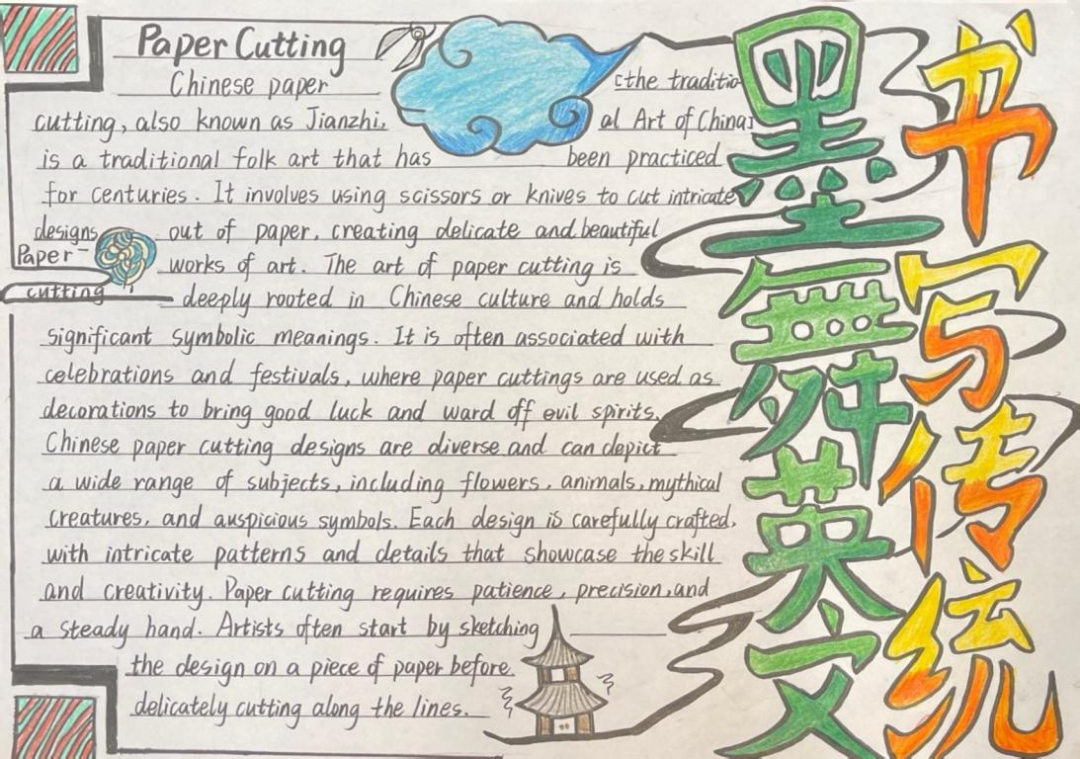 Paper Cutting
Chinese paper
cutting, also known as Jianzhi,
is a traditional folk art that has been practiced
for centuries. It involves using scissors or knives to cut intricate
designs out of paper, creating delicate and beautiful
works of art. The art of paper cutting is
deeply rooted in Chinese culture and holds
significant symbolic meanings. It is often associated with
celebrations and festivals, where paper cuttings are used as
decorations to bring good luck and ward off evil spirits.
Chinese paper cutting designs are diverse and can depict
a wide range of subjects, including flowers, animals, mythical
creatures, and auspicious symbols. Each design is carefully crafted,
with intricate patterns and details that showcase the skill
and creativity. Paper cutting requires patience, precision, and
a steady hand. Artists often start by sketching
the design on a piece of paper before
delicately cutting along the lines.
the traditio
al Art of China
Paper-
cutting
墨舞英文
书写传统